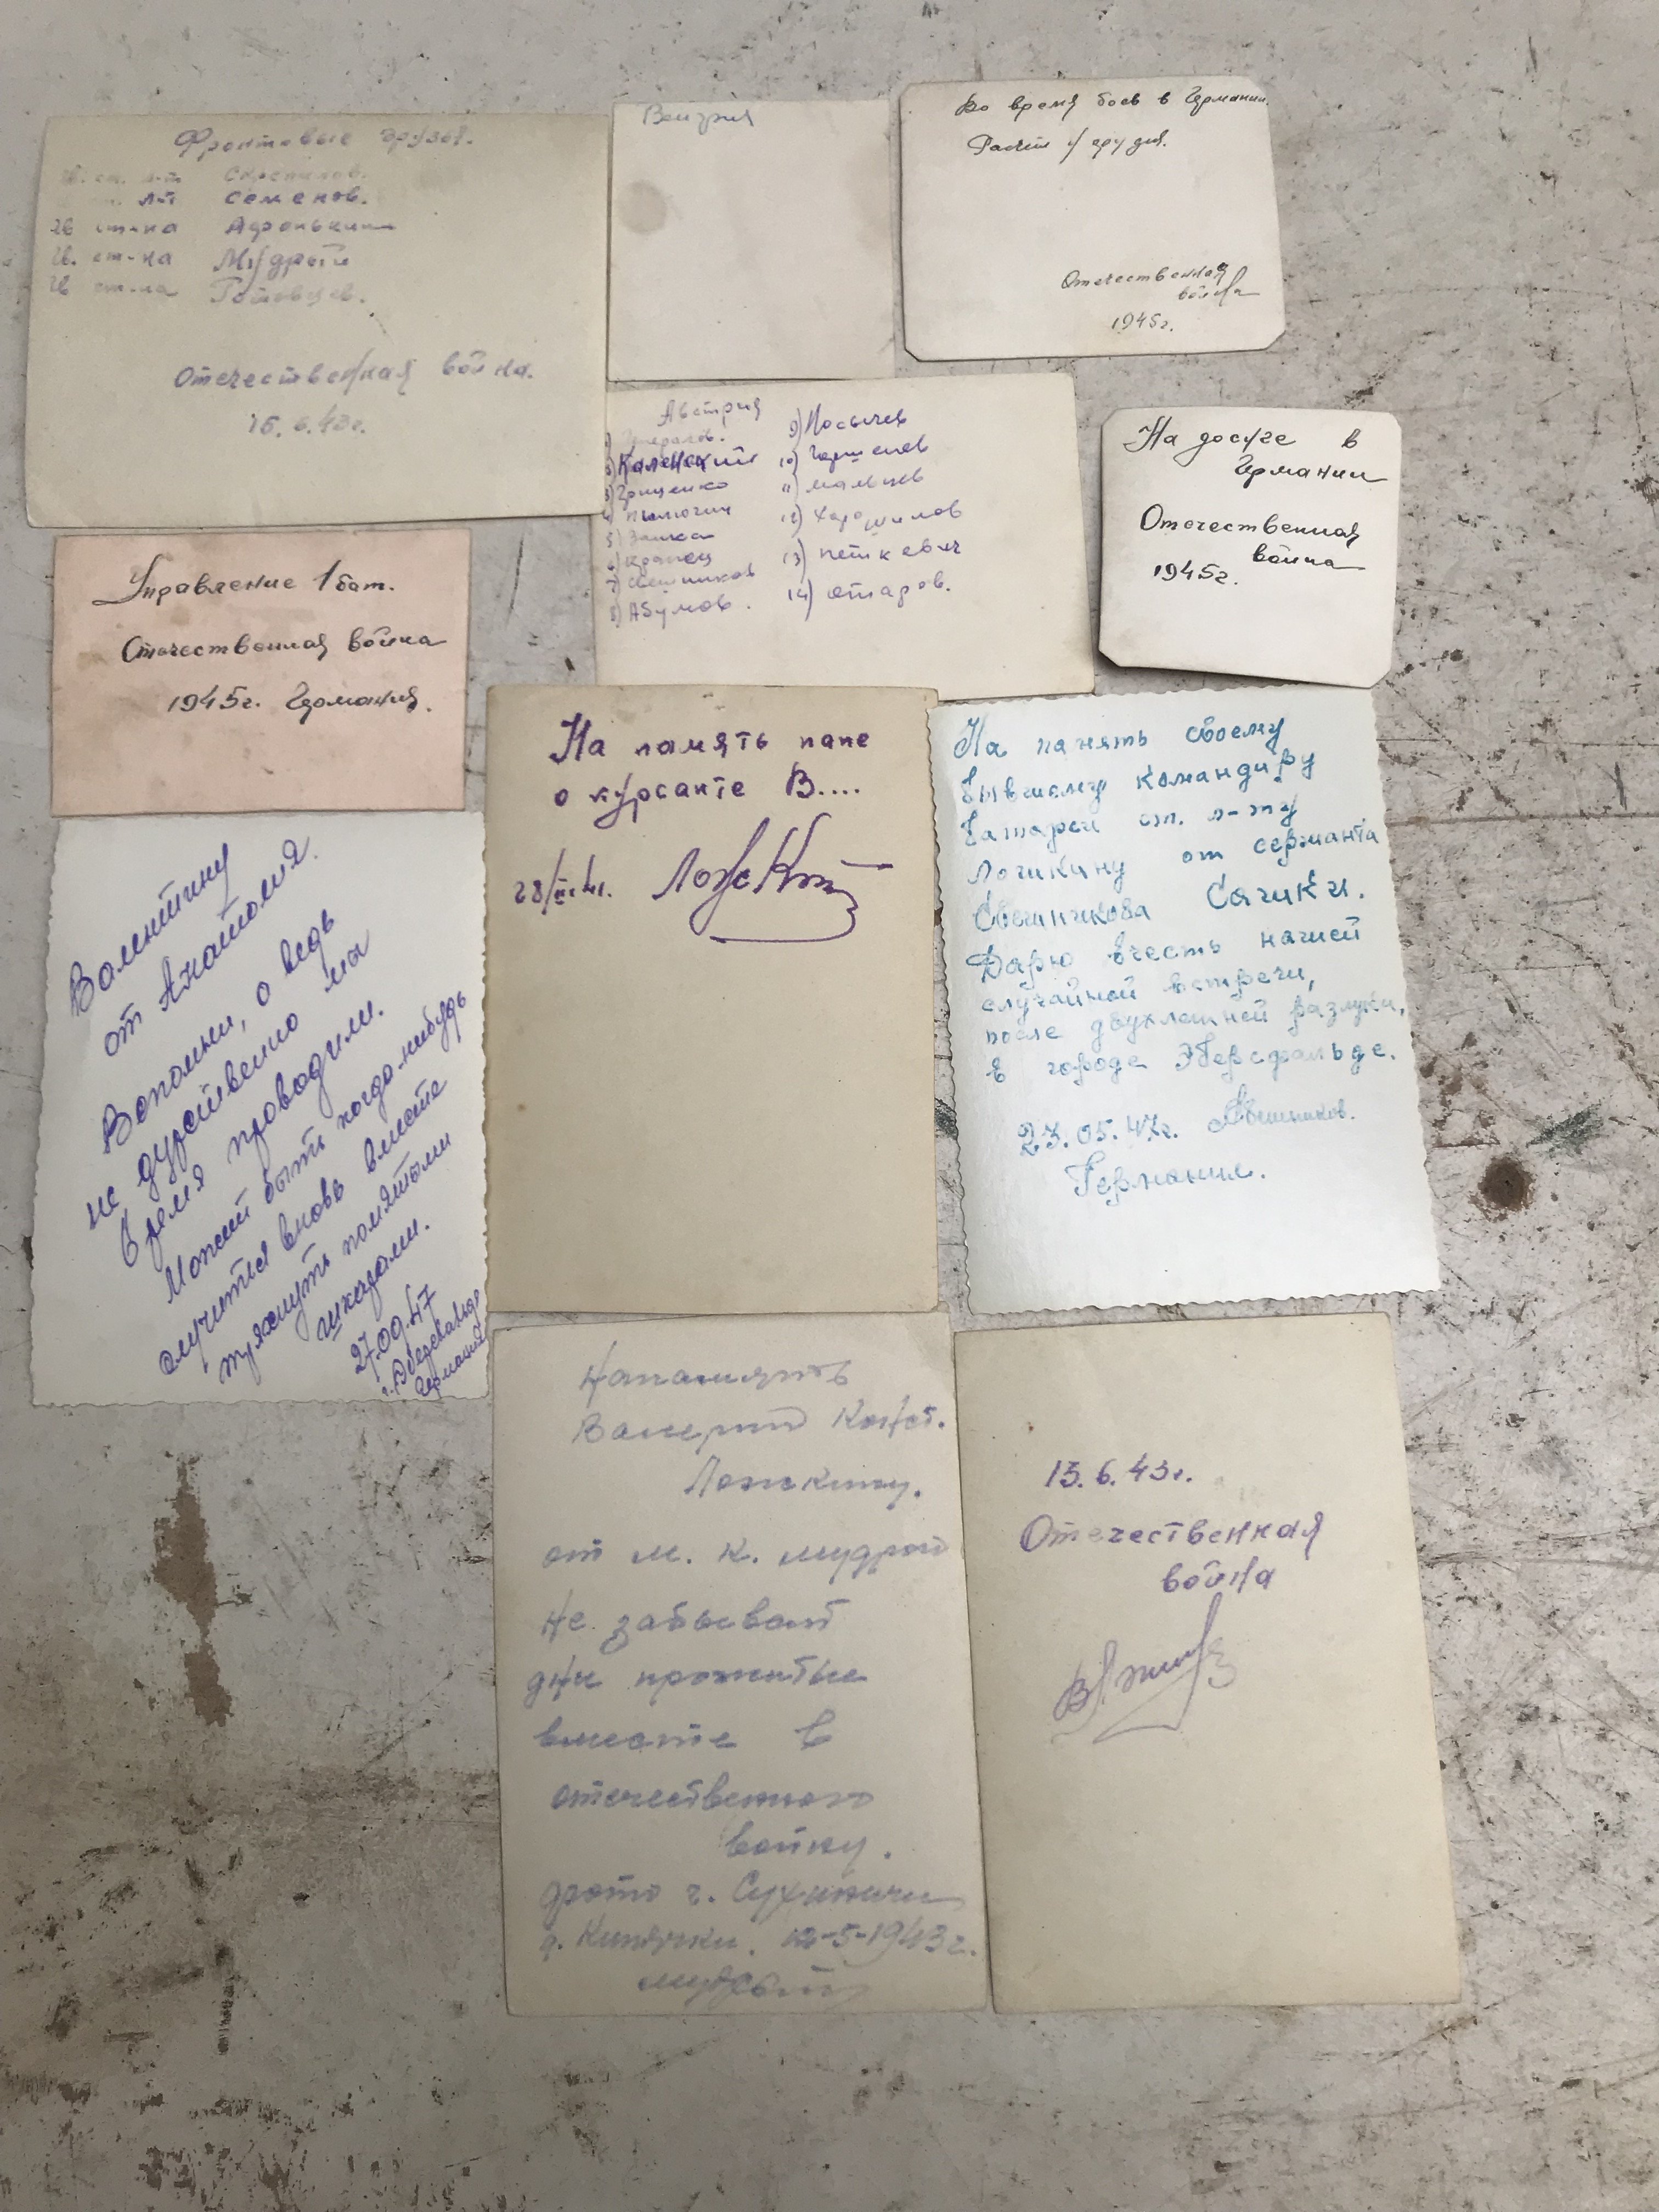 Фронтовые друзья.
лт Семенов.
Гв ст-на Адронькин
Гв. ст-на Мудрый
Гв ст-на
Отечественная война.
15.6.43г.
Венгрия
Во время боев в Германии.
Расчет орудия.
Отечественная
война
1945г.
Австрия
2) Каленский
3) Грищенко
4) Пилюгин
5) Заика
6) Кравец
7) Свешников
8) Абумов.
9) Носычев
10)
11) Мальцев
12) Харошилов
13) Петкевич
14) Отаров.
На досуге в
Германии
Отечественная
война
1945г.
Управление 1 бат.
Отечественная война
1945г. Германия.
На память папе
о курсанте В....
28/
На память своему
бывшему командиру
батареи ст. л-ту
Ложкину от сержанта
Свешникова Сашки.
Дарю в честь нашей
случайной встречи,
после двухлетней разлуки,
в городе Эберсфальде.
23.05.47г. Свешников.
Германия.
Валентину
от Анатолия.
Вспомни, а ведь
не дурственно мы
время проводили.
Может быть когда-нибудь
случится вновь вместе
тряхнуть
27.09.47
г.
Германия
На память
Валерию Конст.
Ложкину.
от М. К. Мудрый
Не забывай
дни прожитые
вместе в
отечественного
войну.
фото г. Сухиничи
д. 12-5-1943г.
Мудрый
15.6.43г.
Отечественная
война